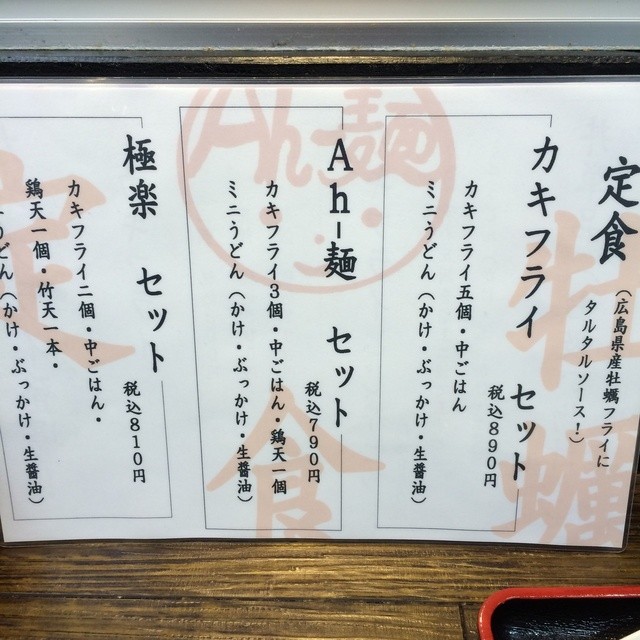 定食
（広島県産牡蠣フライに
タルタルソース！）
カキフライ　セット
税込890円
カキフライ五個・中ごはん
ミニうどん（かけ・ぶっかけ・生醤油）
Ah-麺　セット
税込790円
カキフライ3個・中ごはん・鶏天一個
ミニうどん（かけ・ぶっかけ・生醤油）
極楽　セット
税込810円
カキフライ二個・中ごはん・
鶏天一個・竹天一本・
うどん（かけ・ぶっかけ・生醤油）
Ah-麺
牡蠣
定食